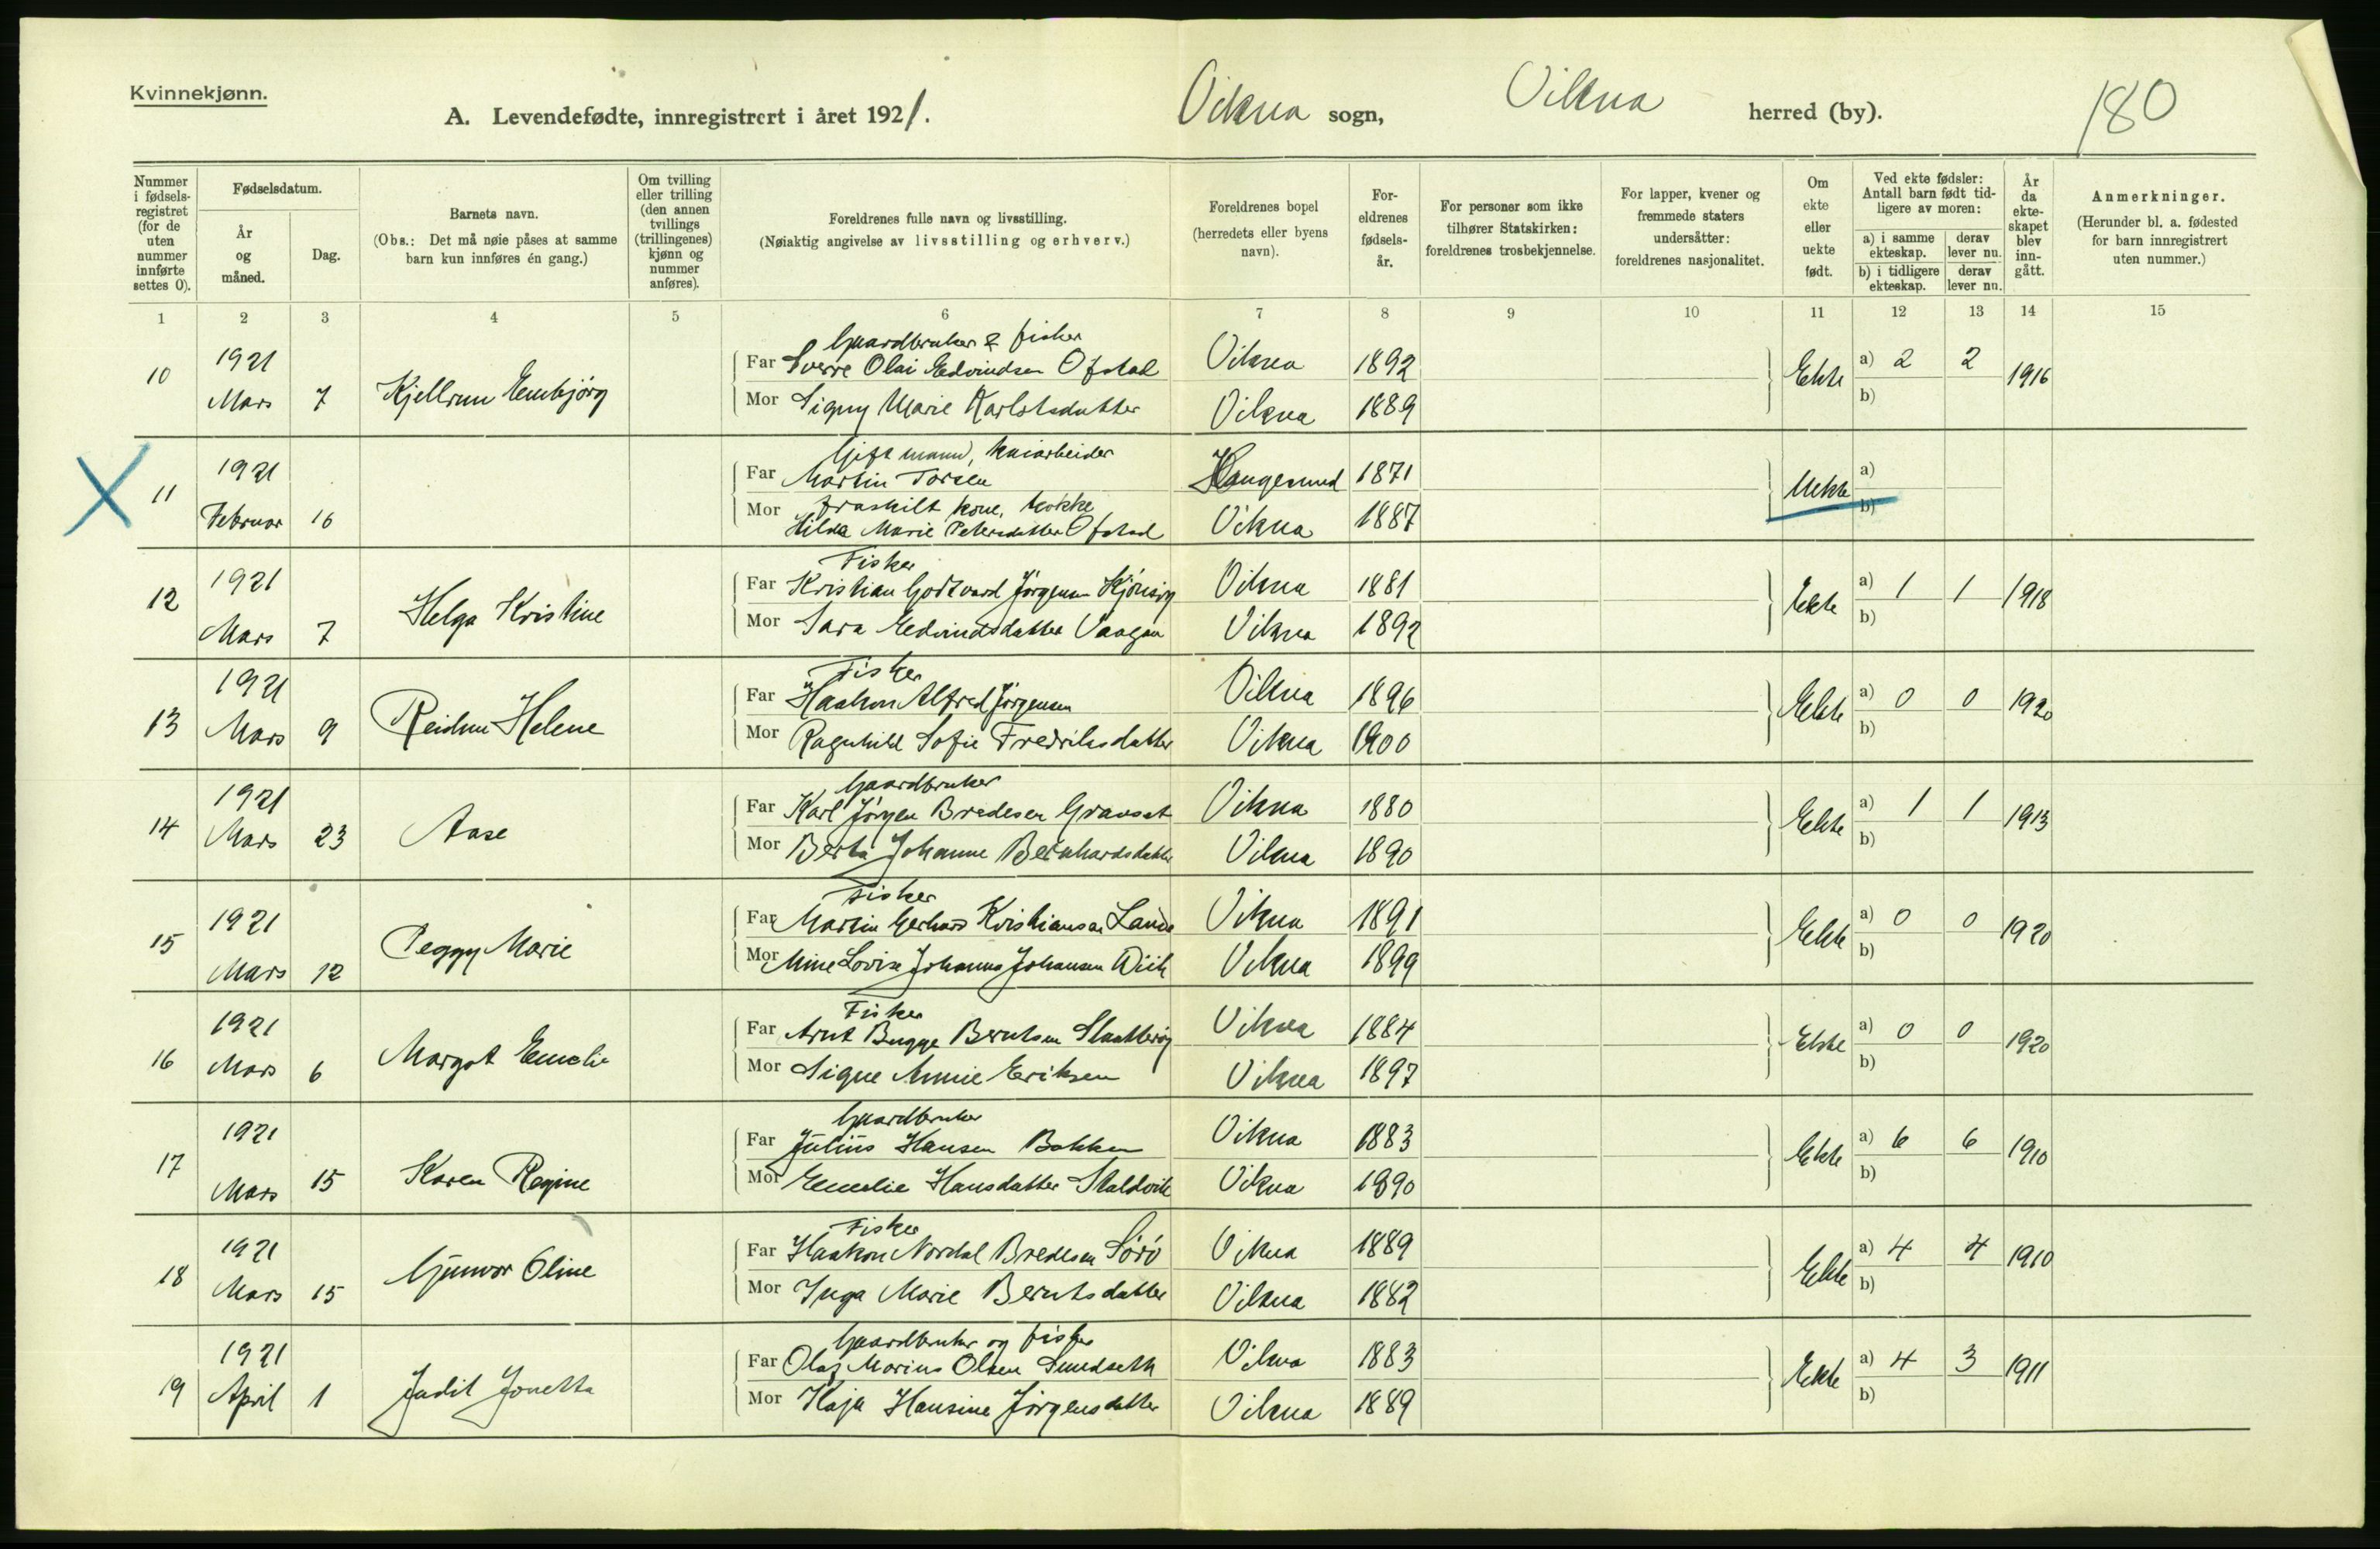 Kvinnekjønn.
A. Levendefødte, innregistrert i året 1921. Vikna sogn, Vikna herred (by). 180
Nummer i fødselsregistret (for de uten nummer innførte settes 0).
Fødselsdatum.
År og måned.
Dag.
Barnets navn.
(Obs.: Det må nøie påses at samme barn kun innføres én gang.)
Om tvilling eller trilling (den annen tvillings (trillingenes) kjønn og nummer anføres).
Foreldrenes fulle navn og livsstilling.
(Nøiaktig angivelse av livsstilling og erhverv.)
Foreldrenes bopel (herredets eller byens navn).
Foreldrenes fødselsår.
For personer som ikke tilhører Statskirken: foreldrenes trosbekjennelse.
For lapper, kvener og fremmede staters undersåtter: foreldrenes nasjonalitet.
Om ekte eller uekte født.
Ved ekte fødsler: Antall barn født tidligere av moren:
a) i samme ekteskap. derav lever nu.
b) i tidligere ekteskap. derav lever nu.
År da ekteskapet blev inngått.
Anmerkninger.
(Herunder bl. a. fødested for barn innregistrert uten nummer.)
1 2 3 4 5 6 7 8 9 10 11 12 13 14 15
Gaardbruker & fisker
10 1921 Mars 7 Kjellrun Embjørg
Far Sverre Olai Edvindsen Ofstad Vikna 1892 Ekte a) 2 2 1916
Mor Signy Marie Karlsdatter Vikna 1889 b)
Gift mann, kaiarbeider
11 1921 Februar 16
Far Martin Torsen Haugesund 1871 Uekte a)
fraskilt kone, kokke
Mor Hilda Marie Petersdatter Ofstad Vikna 1887 b)
Fisker
12 1921 Mars 7 Helga Kristine
Far Kristian Godtvard Jørgensen Vikna 1881 Ekte a) 1 1 1918
Mor Sara Edvindsdatter Vaagan Vikna 1892 b)
Fisker
13 1921 Mars 9 Reidun Helene
Far Haakon Alfred Jørgensen Vikna 1896 Ekte a) 0 0 1920
Mor Ragnhild Sofie Fredriksdatter Vikna 1900 b)
Gaardbruker
14 1921 Mars 23 Aase
Far Karl Jørgen Bredesen Gransæt Vikna 1880 Ekte a) 1 1 1913
Mor Berta Johanne Bernhardsdatter Vikna 1890 b)
Fisker
15 1921 Mars 12 Peggy Marie
Far Martin Gerhard Kristiansen Lande Vikna 1891 Ekte a) 0 0 1920
Mor Mine Lovise Johanna Johansen Wiik Vikna 1899 b)
Fisker
16 1921 Mars 6 Margot Emelie
Far Arnt Bugge Berntsen Vikna 1884 Ekte a) 0 0 1920
Mor Signe Annie Eriksen Vikna 1897 b)
Gaardbruker
17 1921 Mars 15 Karen Regine
Far Julius Hansen Bakken Vikna 1883 Ekte a) 6 6 1910
Mor Emelie Hansdatter Staldvik Vikna 1890 b)
Fisker
18 1921 Mars 15 Gunvor Oline
Far Haakon Nordal Bredesen Sørø Vikna 1889 Ekte a) 4 4 1910
Mor Inga Marie Berntsdatter Vikna 1882 b)
Gaardbruker og fisker
19 1921 April 1 Judit Jonetta
Far Olaf Marius Olsen Sundseth Vikna 1883 Ekte a) 4 3 1911
Mor Kaja Hansine Jørgensdatter Vikna 1889 b)